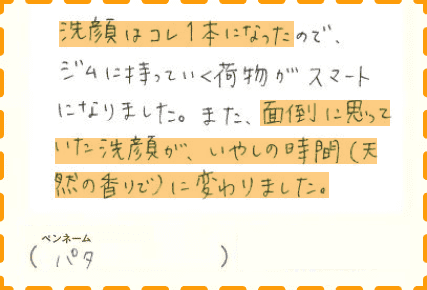 洗顔はコレ1本になったので、
ジムに持っていく荷物がスマート
になりました。また、面倒に思って
いた洗顔が、いやしの時間(天
然の香りで)に変わりました。
ペンネーム
(パタ)